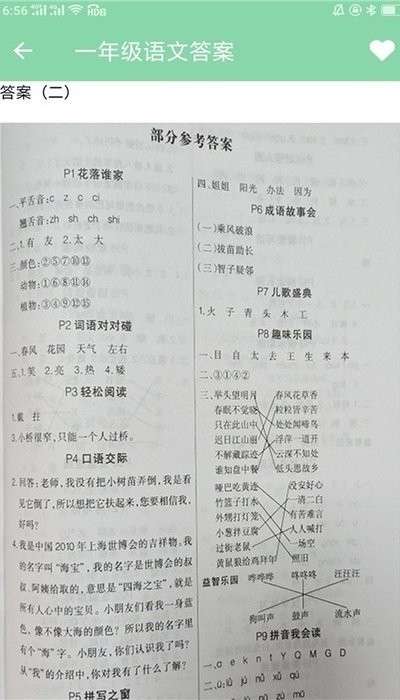 6:56
一年级语文答案
答案（二）
部分参考答案
P1 花落谁家
一、平舌音:c z c ci
翘舌音:zh sh ch shi
二、1.有 友 2.太 大
三、颜色:②⑤⑦⑩⑬
动物:①⑥⑧⑪⑭
植物:③④⑨⑫⑮
P2 词语对对碰
一、春风 花园 天气 左右
五、1.笑 2.亮 3.热 4.矮
P3 轻松阅读
1.戴 拄
3.小桥很窄,只能一个人过桥。
P4 口语交际
2.回答:老师,我没有把小树苗弄倒,我是看
见它倒了,所以想把它扶起来,您要相信我,
好吗?
4.我是中国2010年上海世博会的吉祥物。我
的名字叫“海宝”,我的名字是世博会的叔
叔、阿姨给取的,意思是“四海之宝”,就是
所有人心中的宝贝。小朋友们看我一身蓝
色,像不像大海的颜色?所以我的名字里
有个“海”字。小朋友,你们认识我了吗?
从“我”的介绍中,你对我有了什么了解?
P5 拼写之窗
四、姐姐 阳光 办法 因为
P6 成语故事会
(一)乘风破浪
(二)拔苗助长
(三)智子疑邻
P7 儿歌盛典
1.火 子 青 头 木 工
P8 趣味乐园
一、目 自 太 去 王 生 来 本
二、③①④②
三、举头望明月 春风花草香
春眠不觉晓 粒粒皆辛苦
只在此山中 处处闻啼鸟
迟日江山丽 浮萍一道开
不解藏踪迹 云深不知处
谁知盘中餐 低头思故乡
哑巴吃黄连 没安好心
竹篮子打水 一清二白
外甥打灯笼 有苦难言
小葱拌豆腐 人人喊打
过街老鼠 一场空
黄鼠狼给鸡拜年 照旧
益智乐园 哗哗哗 咚咚咚 汪汪汪
狗叫声 鼓声 流水声
P9 拼音我会读